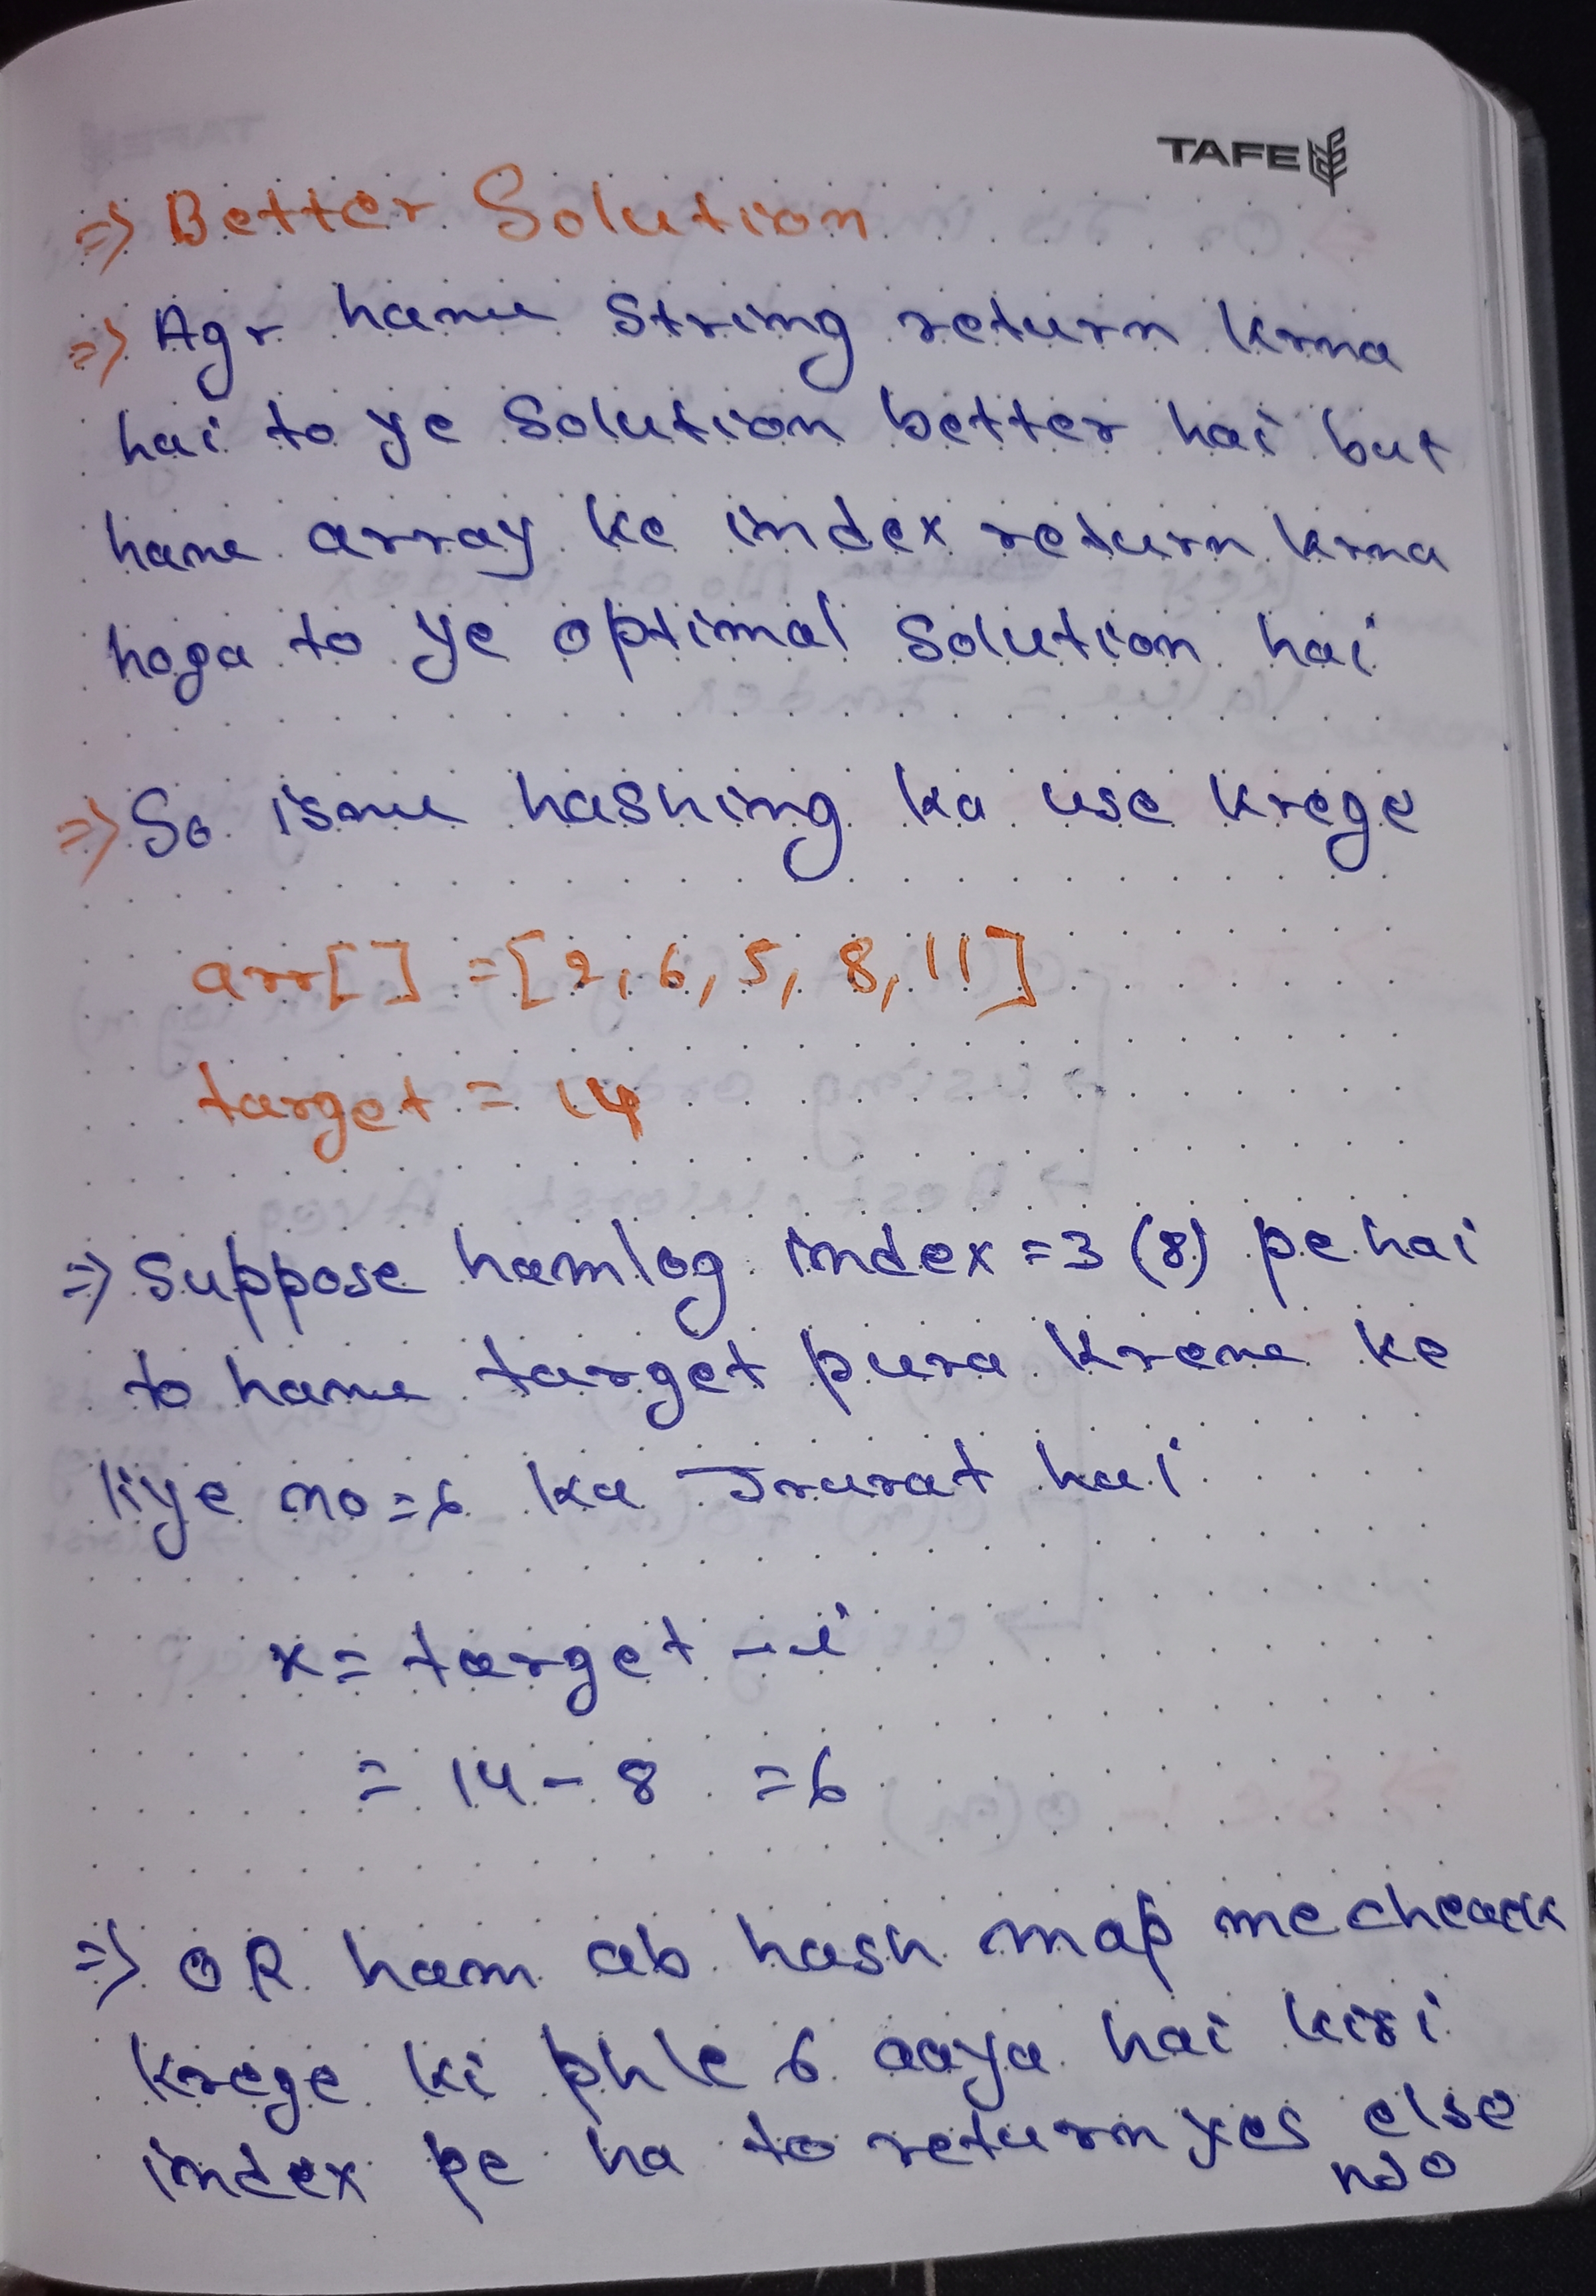 TAFE
=> Better Solution
=> Agr hame String return krna
hai to ye Solution better hai but
hame array ke index return krna
hoga to ye optimal Solution hai
=> So isme hashing ka use krege
arr[] = [2, 6, 5, 8, 11]
target = 14
=> Suppose hamlog index = 3 (8) pe hai
to hame target pura krene ke
liye no = 6 ka Jrurat hai
x = target - i
= 14 - 8 = 6
=> OR ham ab hash map me cheack
krege ki phle 6 aaya hai kisi
index pe ha to return yes else
no